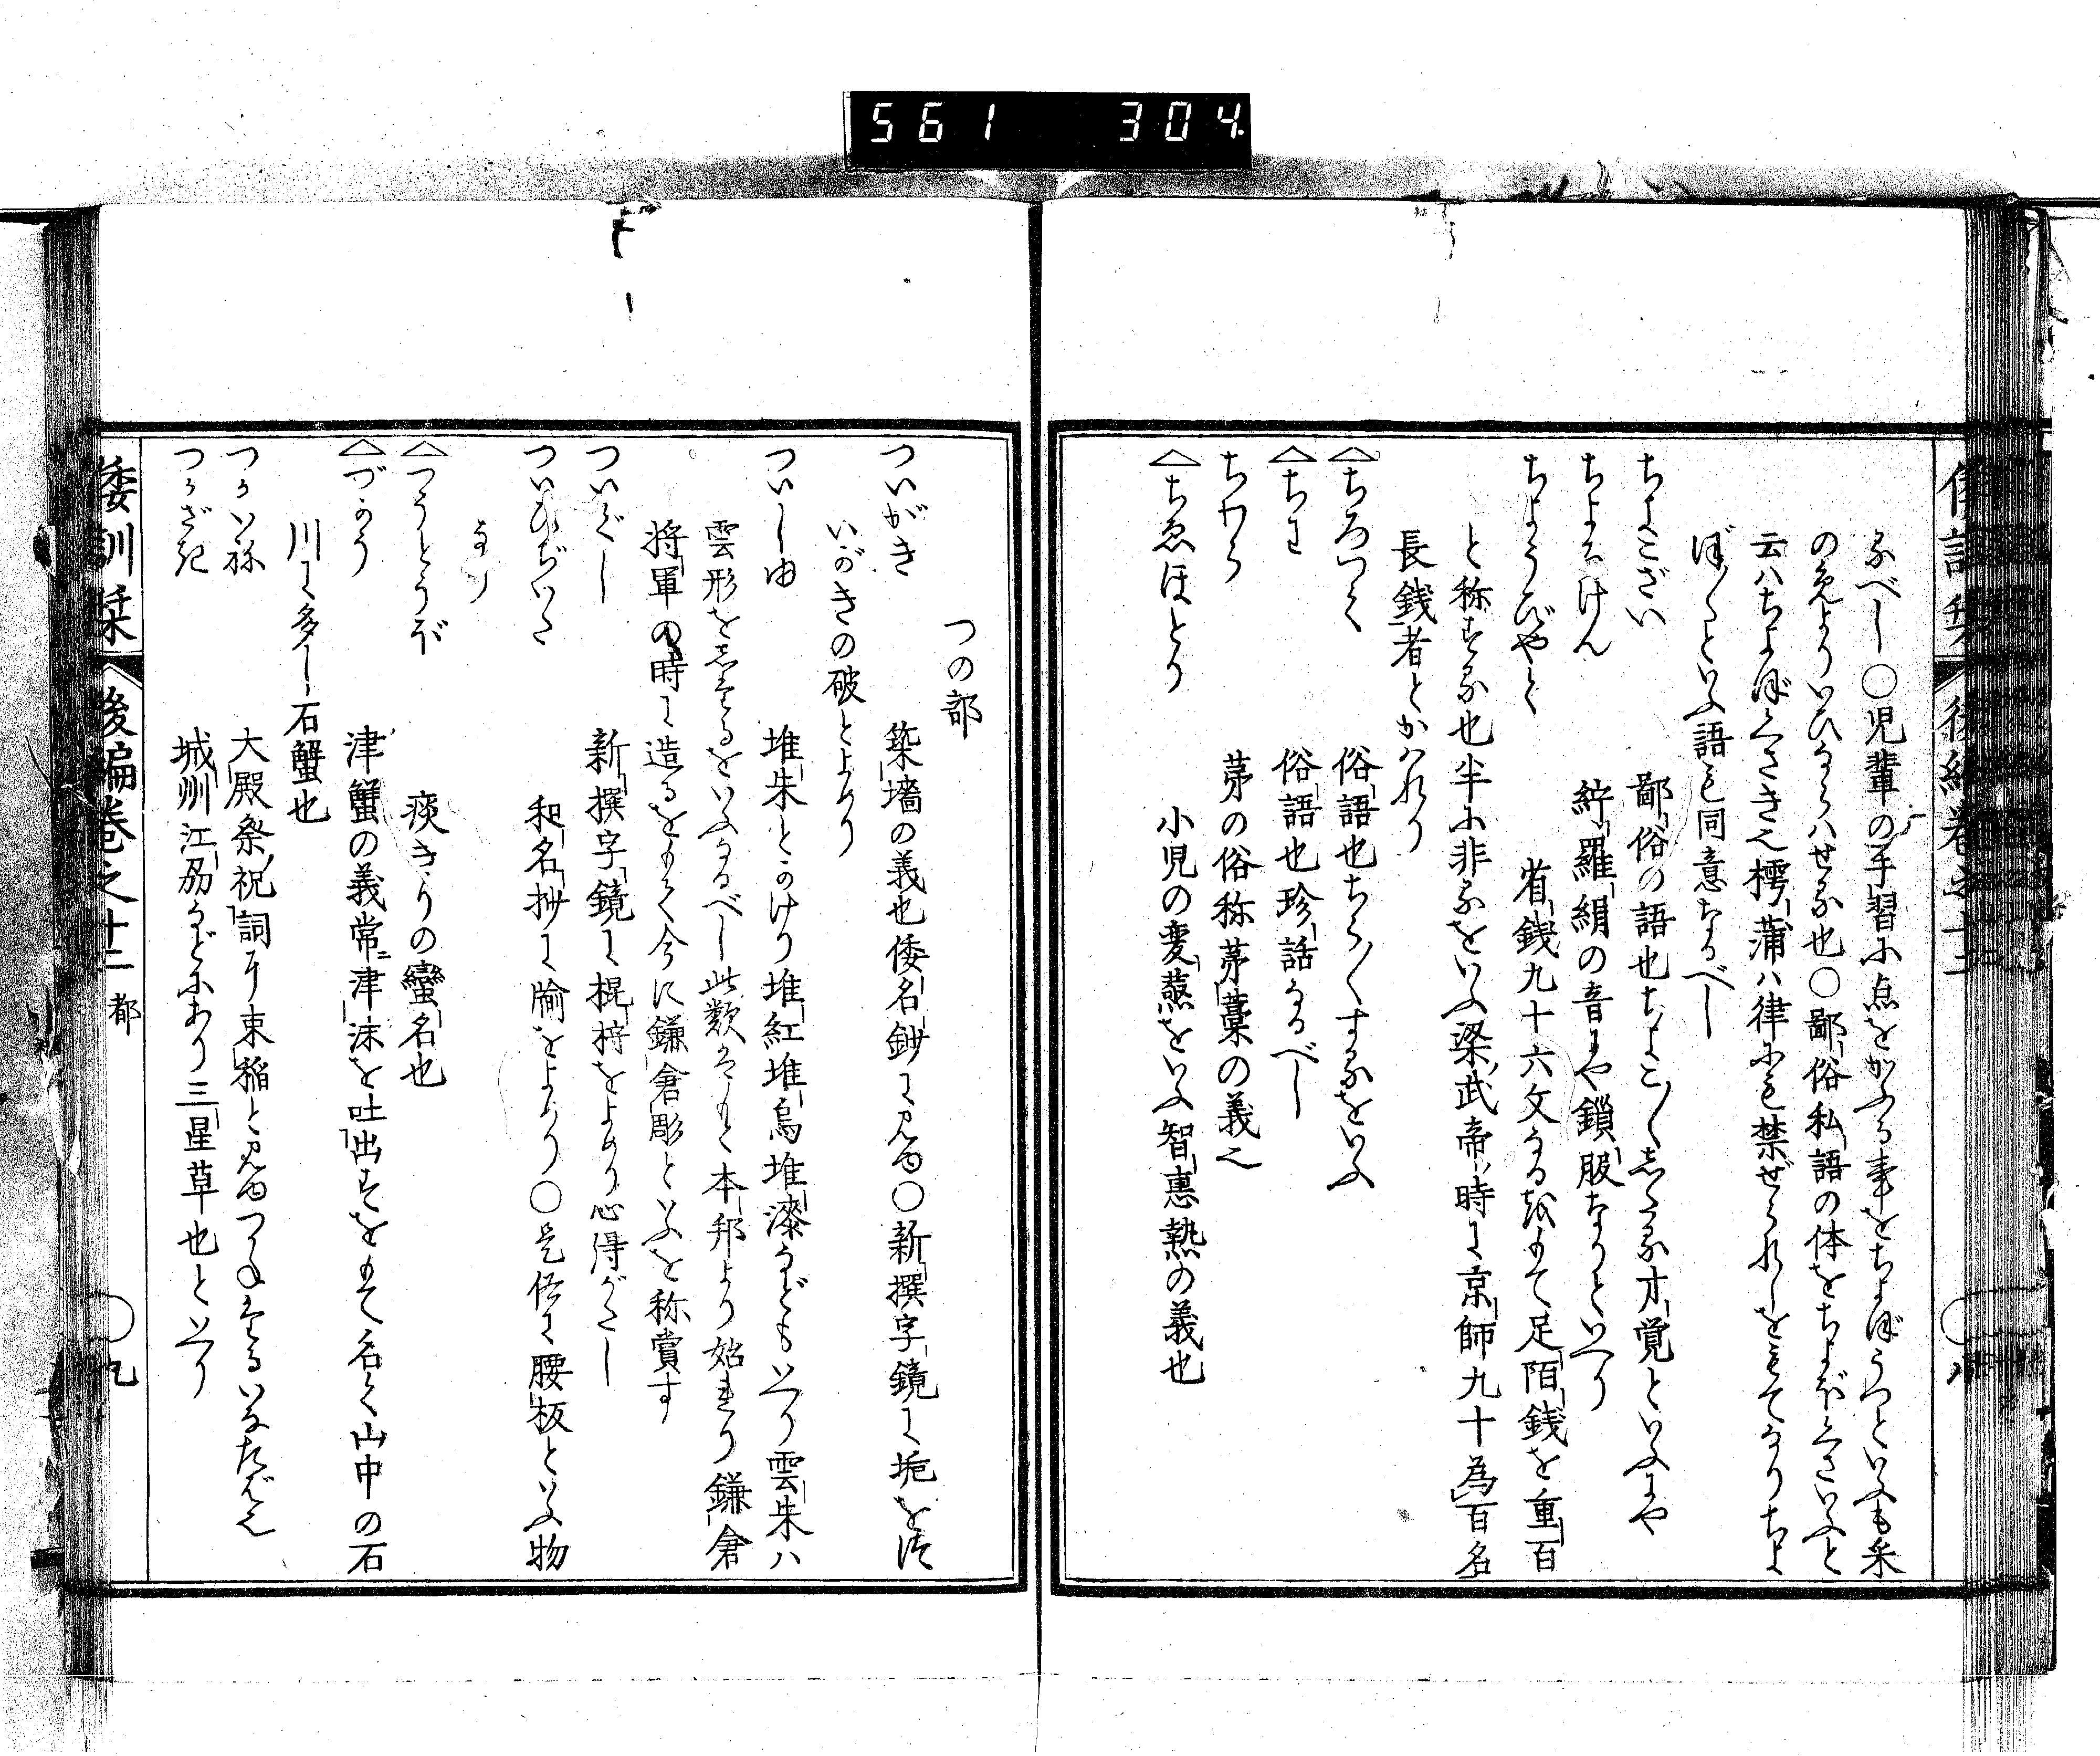 561 304
るべし○児輩の手習に点をかふる事をちよぼうつといふも采
の負よりいひならハせる也○鄙俗私語の体をちよぼくさいふと
云ハちよぼくさき也樗蒲ハ律にも禁ぜられしをもてなりちよ
ぼ〳〵といふ語も同意なるべし
ちよこざい 鄙俗の語也ちよこ〳〵しくる才覚といふにや
ちよろけん 紵羅絹の音にや鎖服なりといへり
ちようびやく 省銭九十六文なるをもて足陌銭を重百
と称する也半に非るをいふ梁武帝ノ時に京師九十為百名
長銭者とかハれり
△ちろつく 俗語也ちら〳〵するをいふ
△ちわ 俗語也珍話なるべし
ちわら 茅の俗称茅藁の義也
△ちゑほとり 小児の変蒸をいふ智恵熱の義也
つの部
ついがき 築墻の義也倭名鈔に見ゆ○新撰字鏡に垝を
いがきの破とよめり
ついしゆ 堆朱とかけり堆紅堆烏堆漆などもいへり雲朱ハ
雲形をしたるをいふなるべし此類すべて本邦より始れり鎌倉
将軍の時に造るをもて今に鎌倉彫といふを称賞す
ついぐし 新撰字鏡に棍桍をよめり心得がたし
ついひぢいた 和名抄に牏をよめり○是俗に腰板といふ物
なり
△つうとうぼ 痰きりの蛮名也
△づかう 津蟹の義常ニ津沫を吐出すをもて名く山中の石
川に多し石蟹也
つかいね 大殿祭ノ祝詞ニ束稲と見ゆつかねたるいなたばなり
つかざき 城州江州などにあり三星草也といへり
倭訓栞 後編巻之十二 都 九